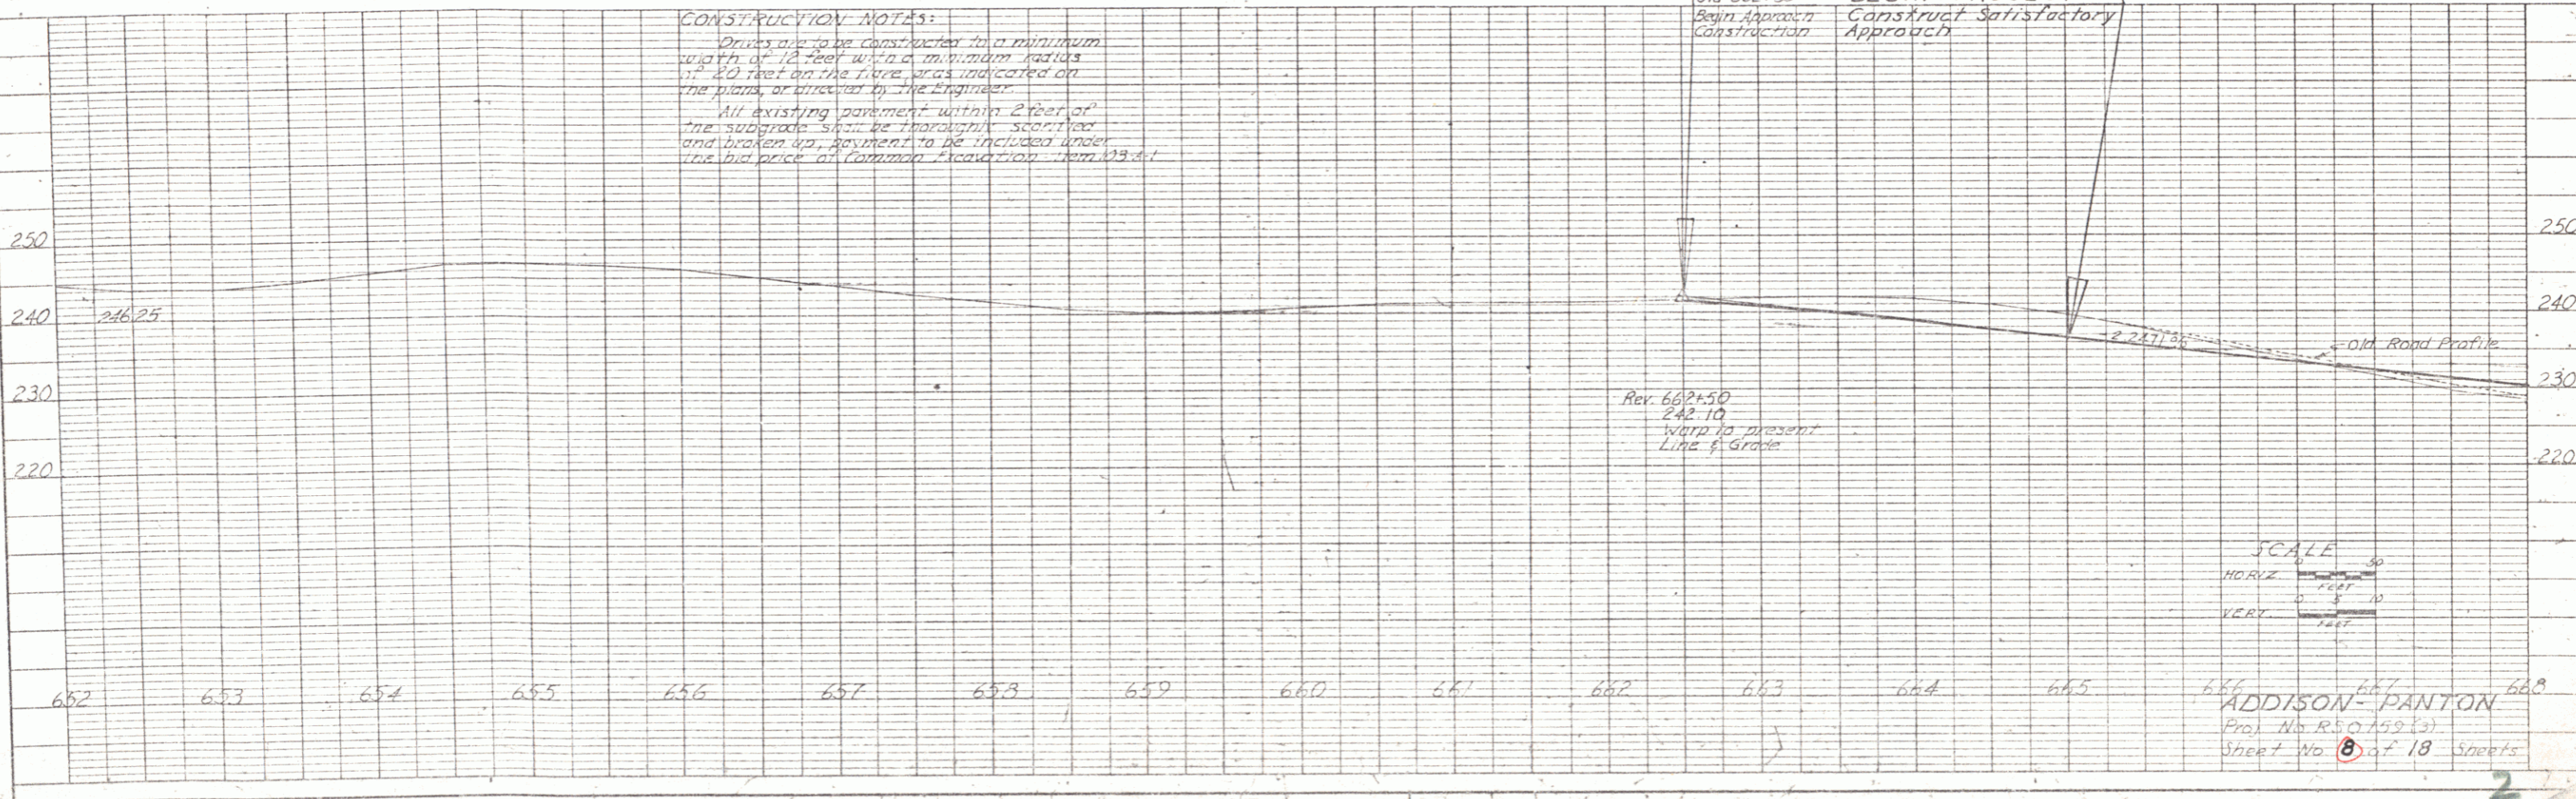 CONSTRUCTION NOTES:
Drives are to be constructed to a minimum
width of 12 feet with a minimum radius
of 20 feet on the flare or as indicated on
the plans, or directed by the Engineer.
All existing pavement within 2 feet of
the subgrade shall be thoroughly scarified
and broken up, payment to be included under
the bid price of Common Excavation Item
Begin Approach
Construction
Construct Satisfactory
Approach
250
240
230
220
250
240
230
220
246.25
-2.2471%
Old Road Profile
Rev. 662+50
242.10
Warp to present
Line & Grade
SCALE
HORIZ.
0 50
FEET
VERT.
0 5 10
FEET
652 653 654 655 656 657 658 659 660 661 662 663 664 665 666 667 668
ADDISON-PANTON
Proj. No. RS 0159(3)
Sheet No 8 of 18 Sheets
2